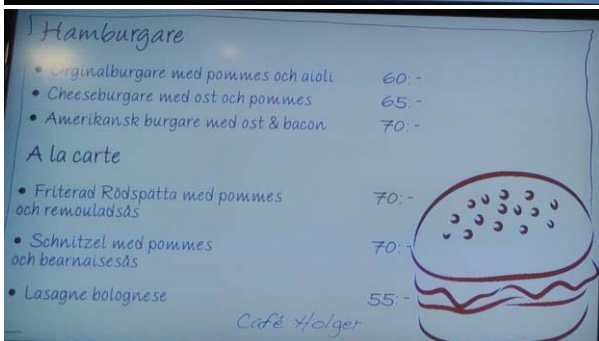 Hamburgare
• Orginalburgare med pommes och aioli 60:-
• Cheeseburgare med ost och pommes 65:-
• Amerikansk burgare med ost & bacon 70:-
A la carte
• Friterad Rödspätta med pommes 70:-
och remouladsås
• Schnitzel med pommes 70:-
och bearnaisesås
• Lasagne bolognese 55:-
Café Holger